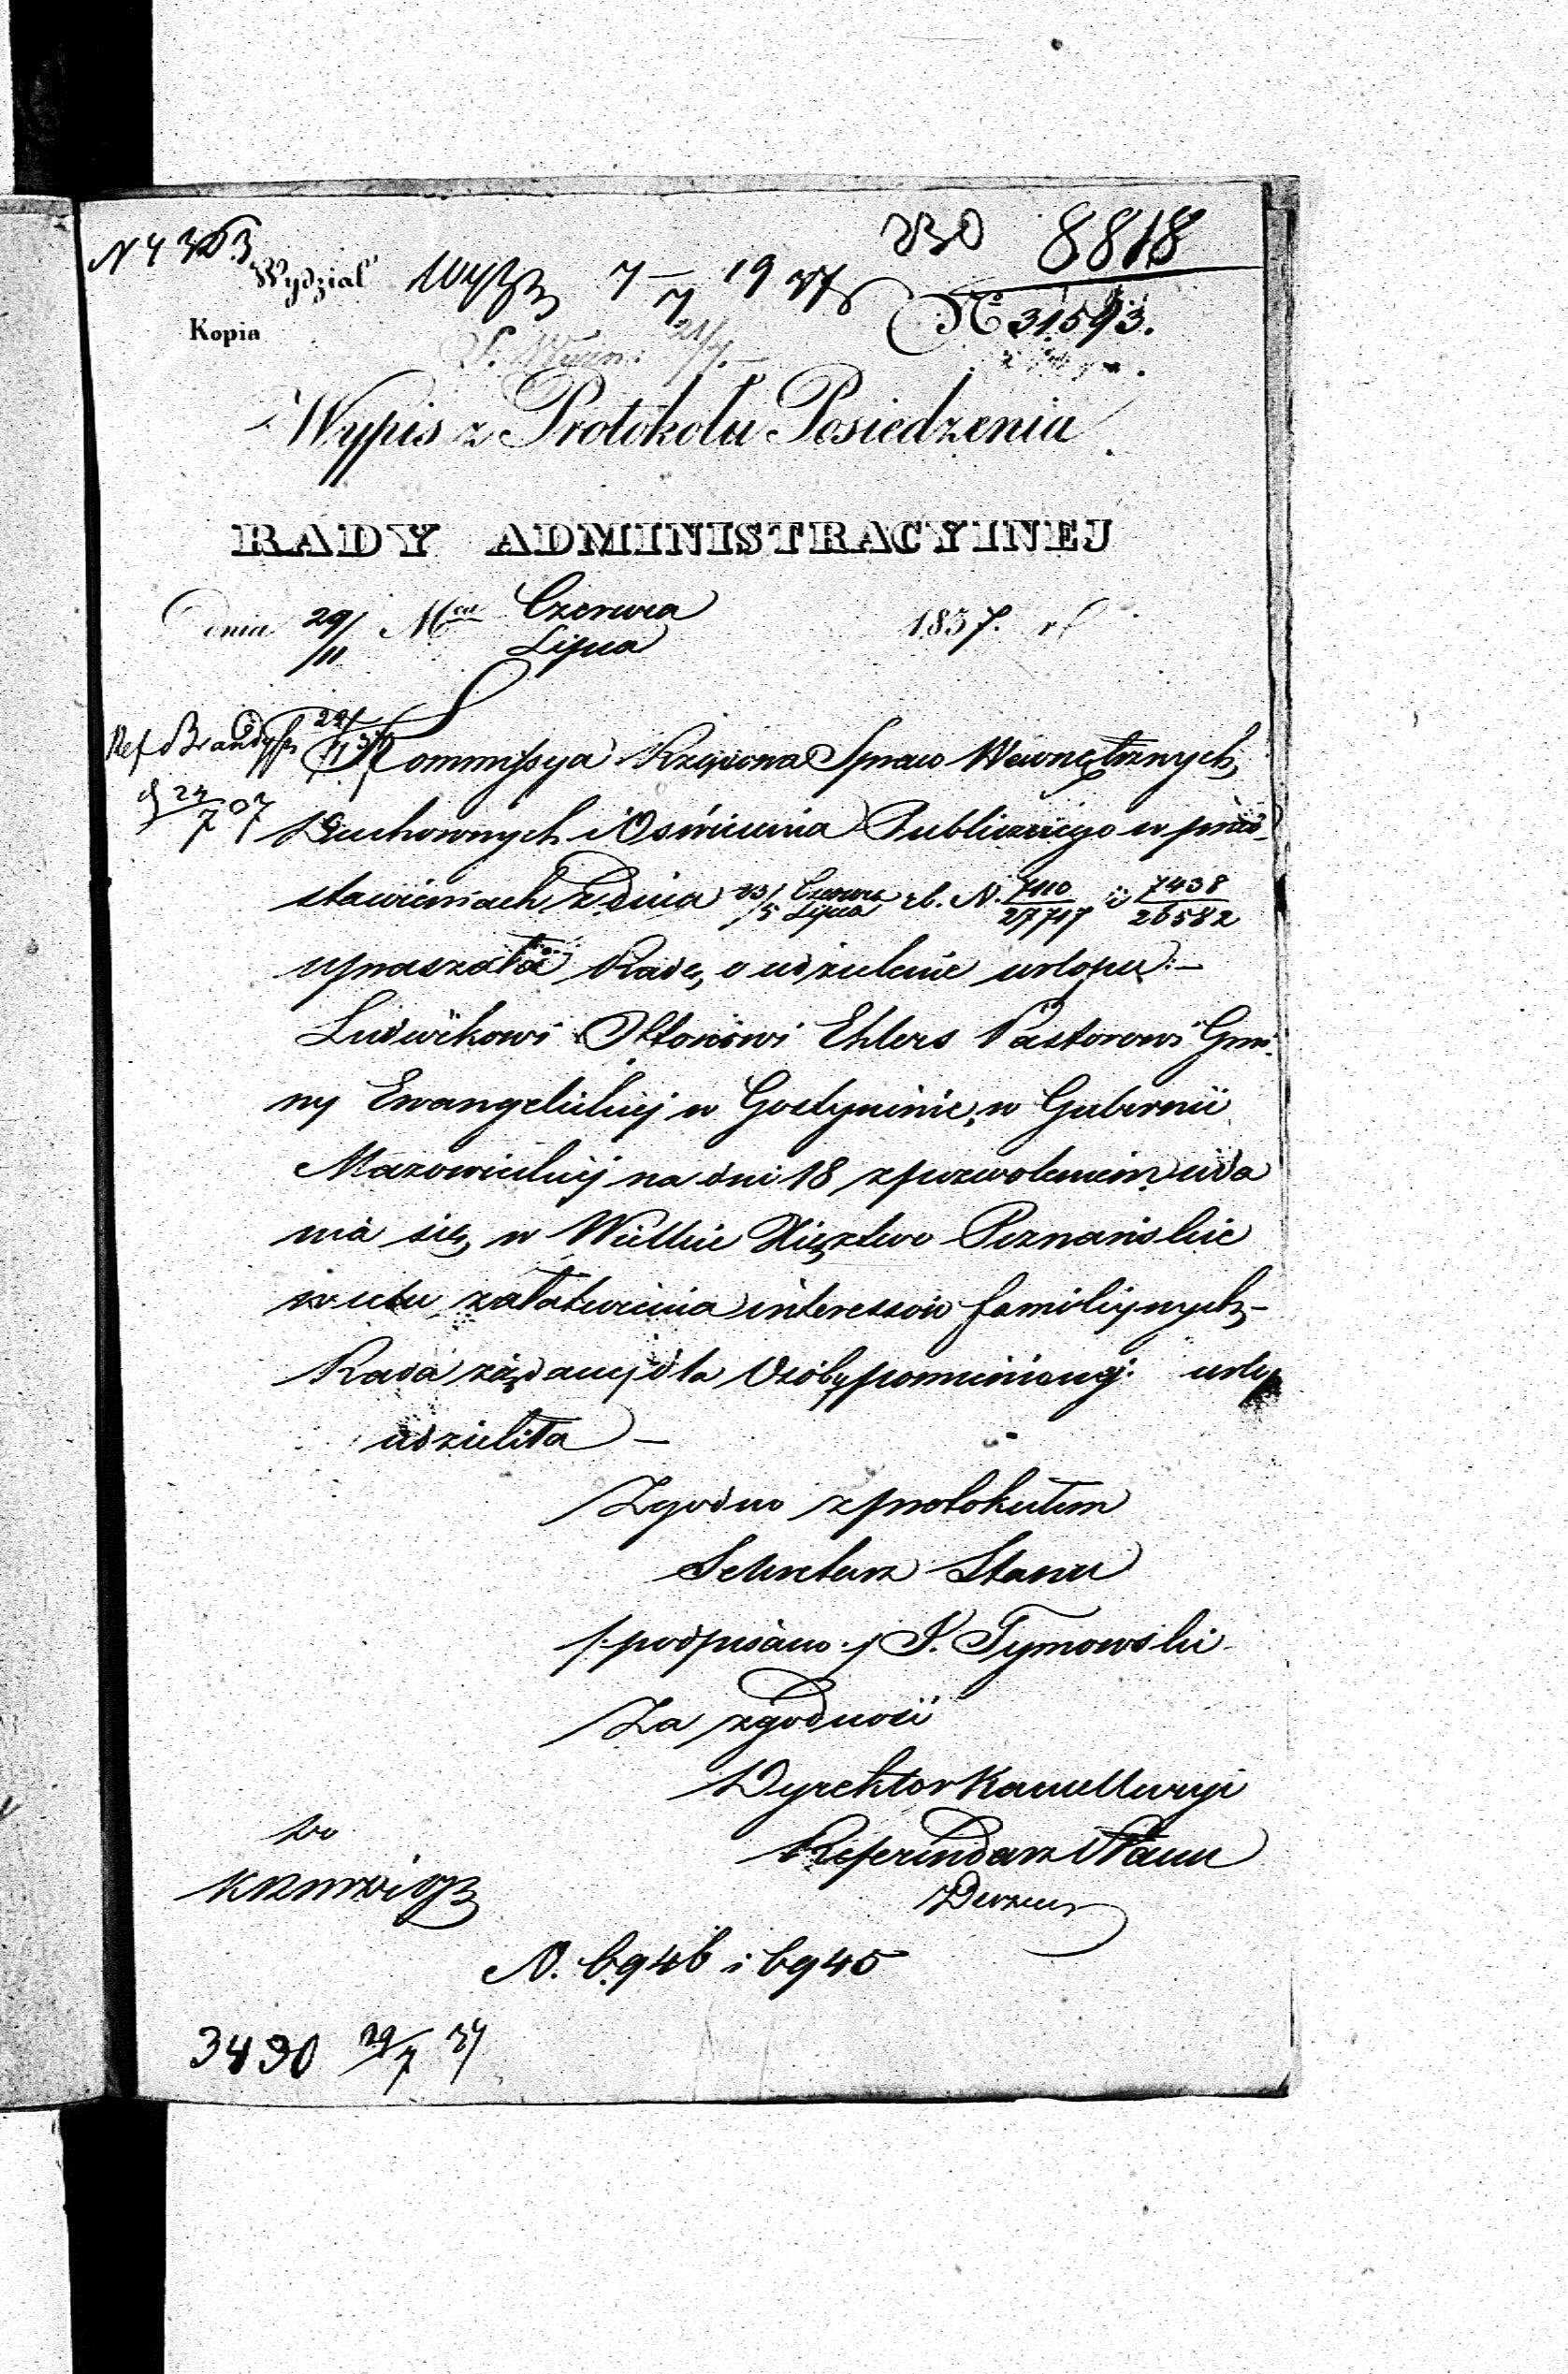 8818
Wydział Wyzn 7/7 1937
Kopia
No 31593.
Wypis z Protokołu Posiedzenia
RADY ADMINISTRACYINEJ
Dnia 29/11 Mca Czerwca/Lipca 1837. r.
Ref
Kommissya Rządowa Spraw Wewnętrznych,
Duchownych i Oświecenia Publicznego w przed-
stawieniach z dnia 23/5 Czerwca/Lipca r.b. N. 7110/27717 i 7438/26582
upraszała Radę, o udzielenie urlopu:-
Ludwikowi Ottonowi Ehlers Pastorowi Gmi-
ny Ewangelickiej w Gostyninie, w Gubernii
Mazowieckiej na dni 18 z pozwoleniem uda
nia się, w Wielkie Xięztwo Poznańskie
w celu załatwienia interessów familijnych-
Rada żądaney dla Osoby pomienioney. urlop
udzieliła -
Zgodno z protokułem
Sekretarz Stanu
/:podpisano:/ J. Tymowski
Za zgodność
Dyrektor Kancellaryi
Referendarz Stanu
N. 6946 i 6945
3490 29/7 37